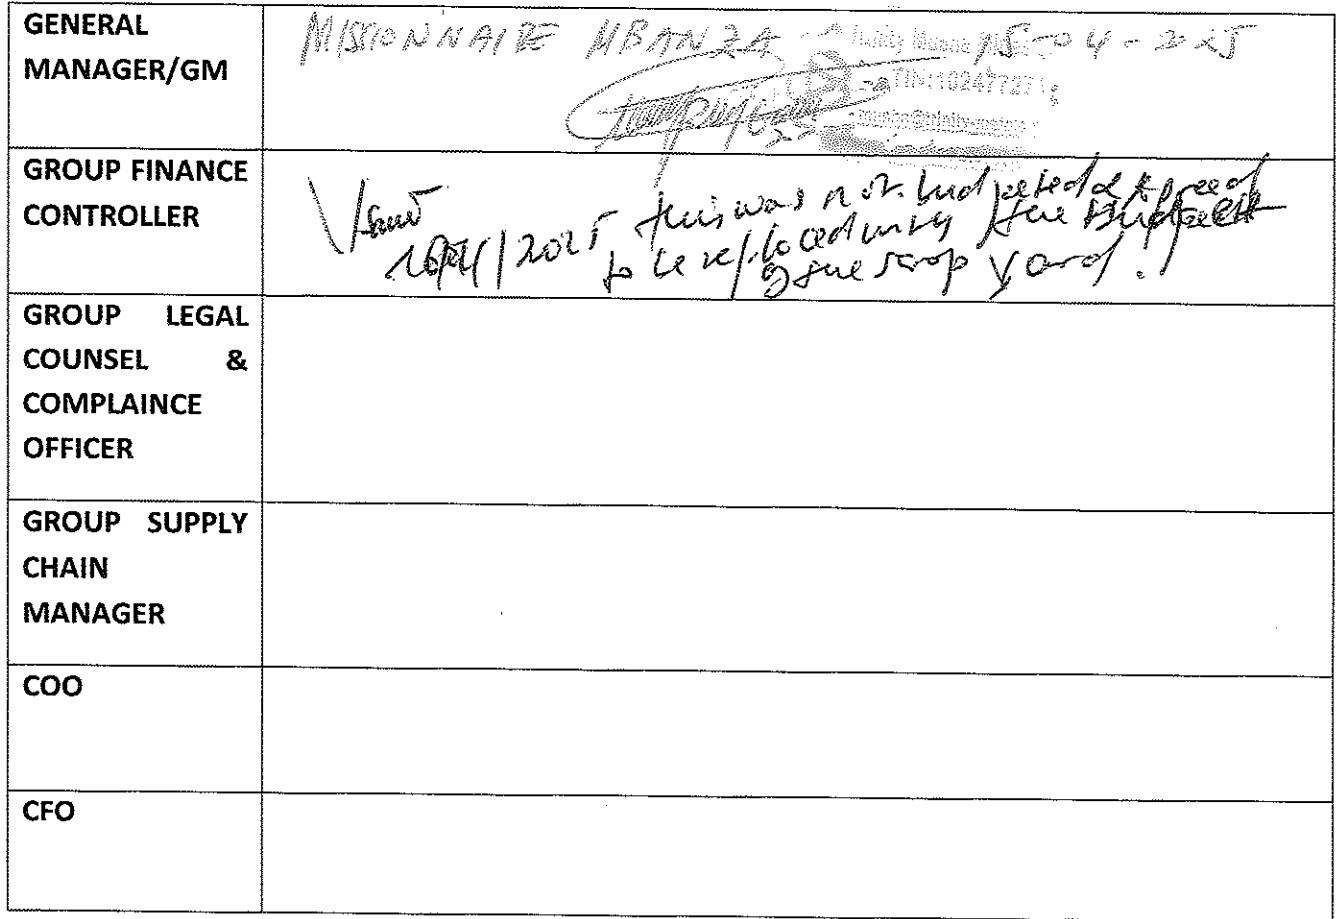 GENERAL
MANAGER/GM
MISSIONNAIRE MBANZA 15-04-225
TIN:10247727
GROUP FINANCE
CONTROLLER
2025 this was not budgeted & agreed
to be using the Budget
of the scrap yard.
GROUP LEGAL
COUNSEL &
COMPLAINCE
OFFICER
GROUP SUPPLY
CHAIN
MANAGER
COO
CFO